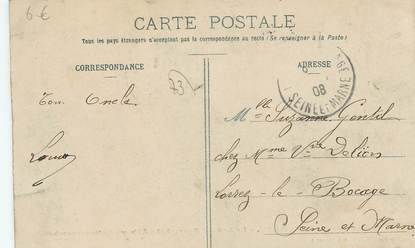 6 €
CARTE POSTALE
Tous les pays étrangers n'acceptent pas la correspondance au recto (Se renseigner à la Poste)
CORRESPONDANCE
ADRESSE
73
08
SEINE-ET-MARNE
Ton Oncle
Louis
Mlle Suzanne Gentil
chez Mme Vve Délion
Lorrez-le-Bocage
Seine et Marne